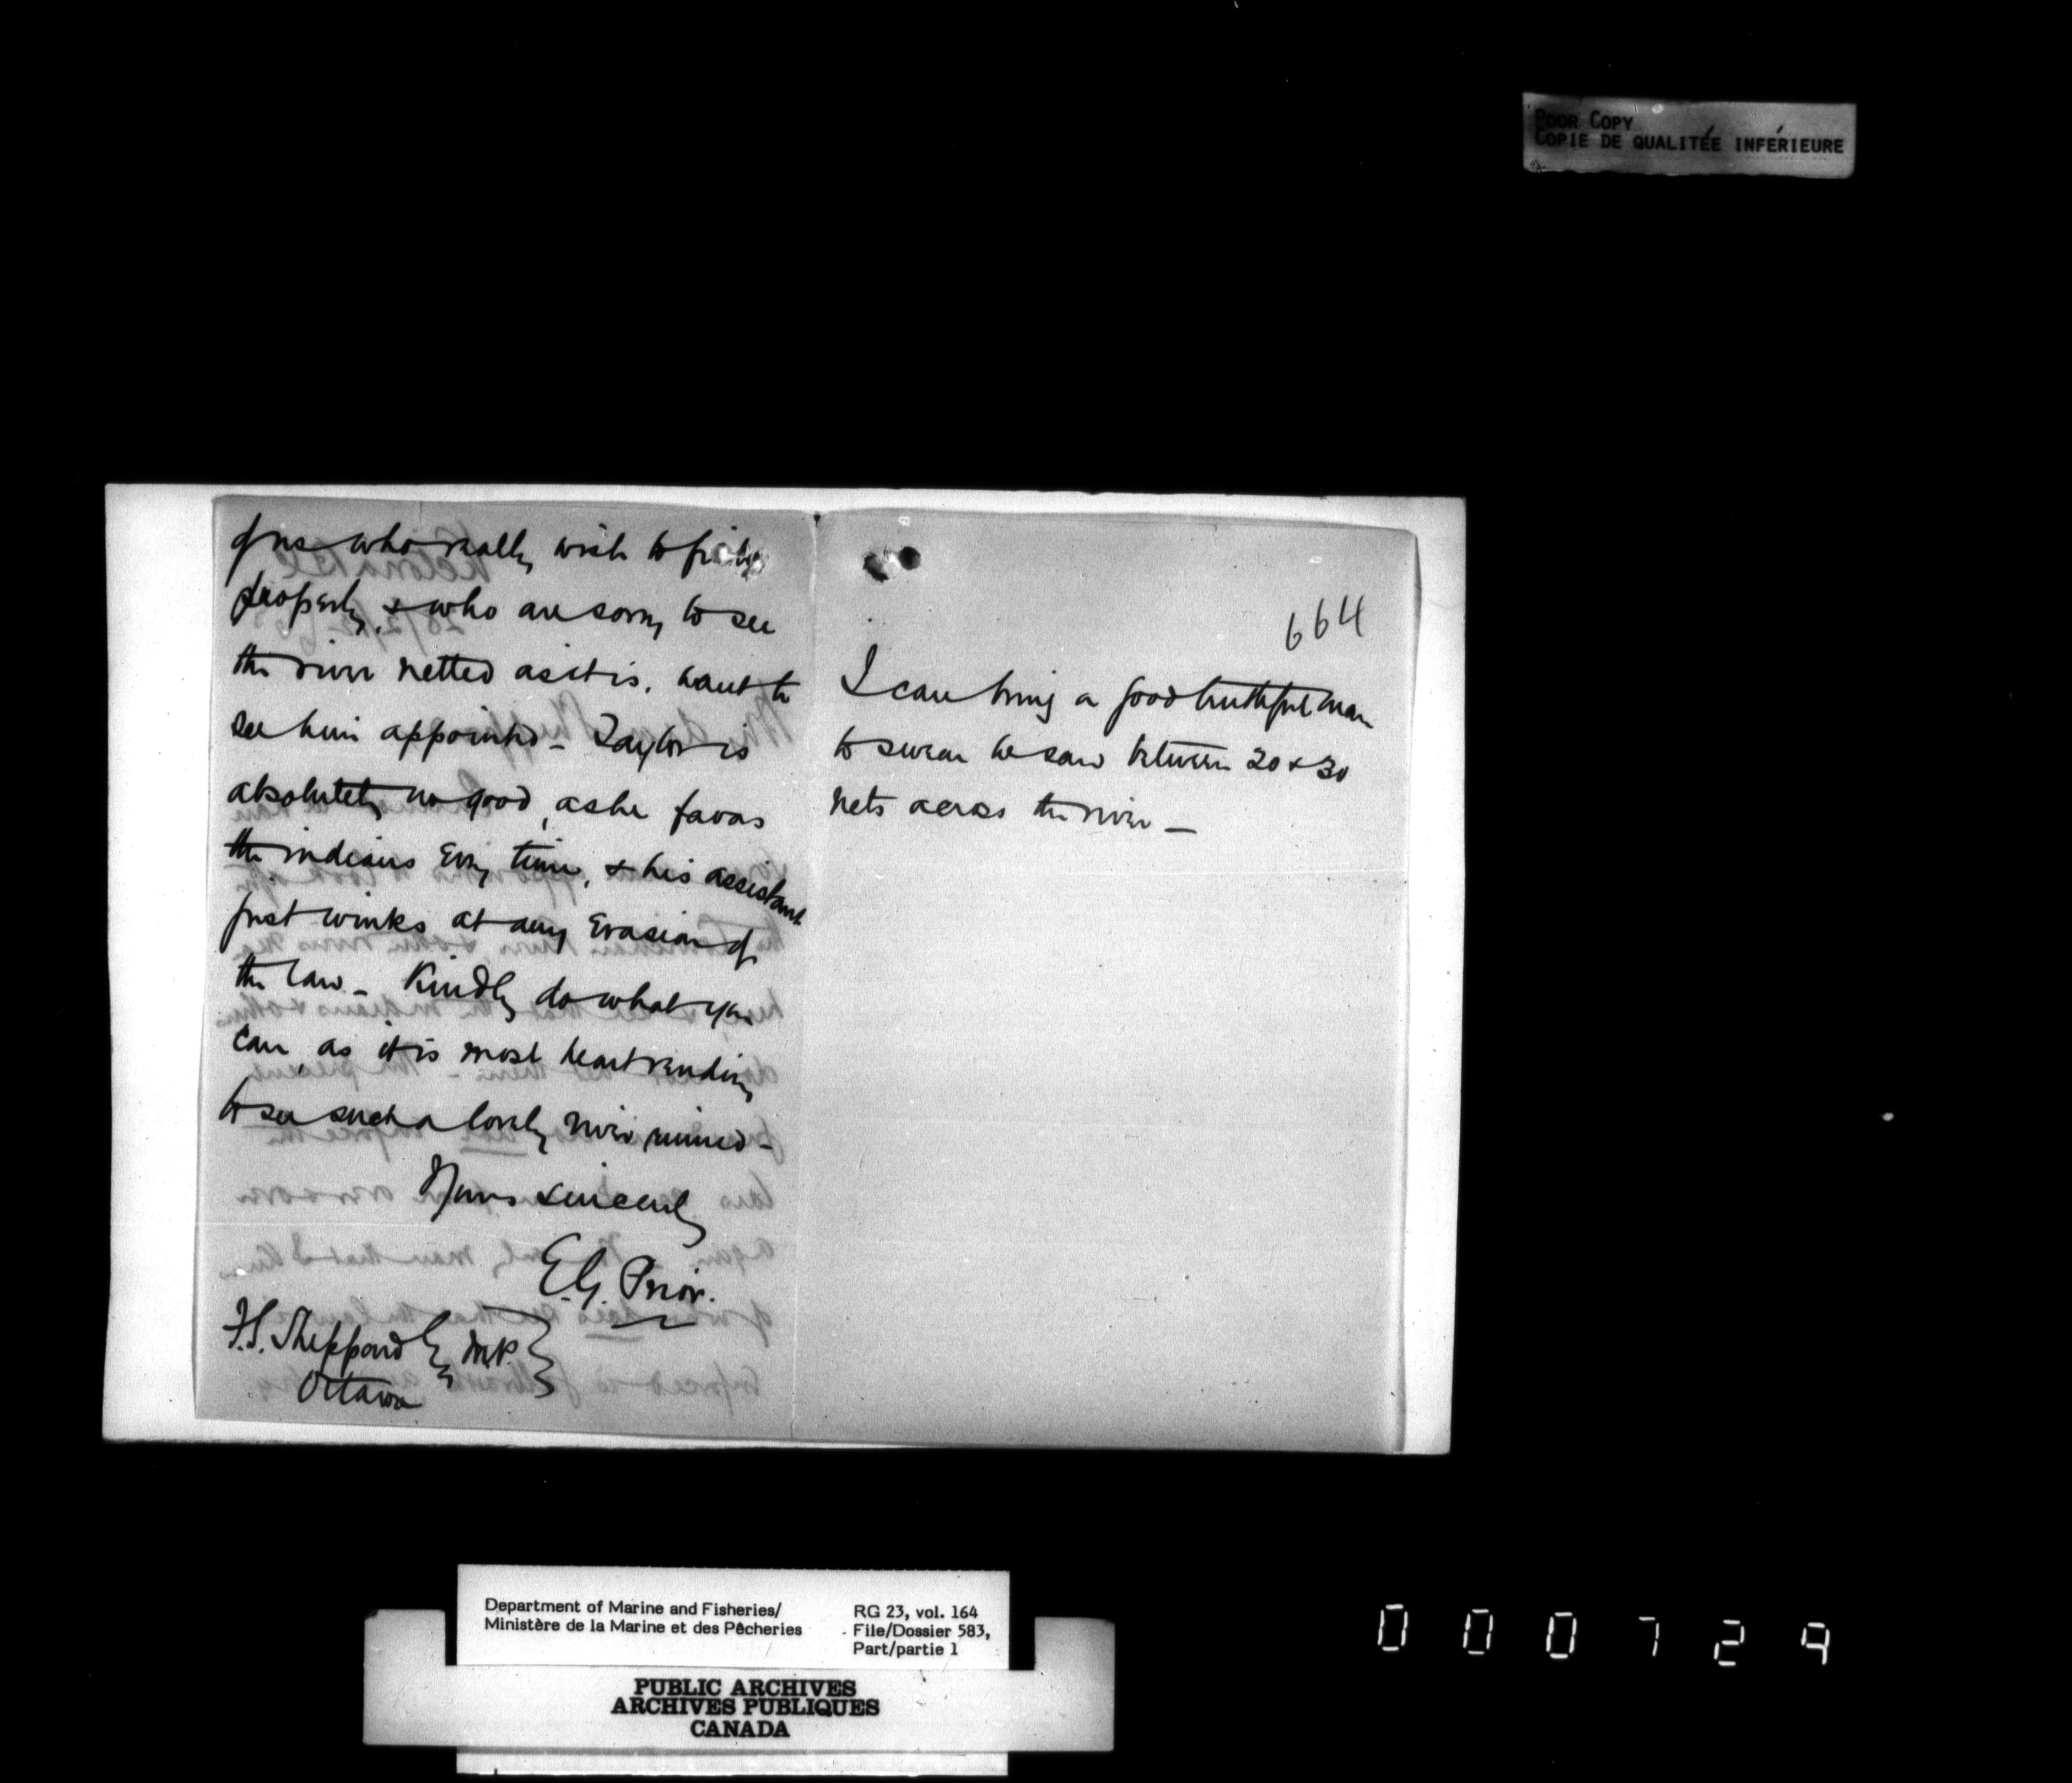 POOR COPY
COPIE DE QUALITÉE INFÉRIEURE
of us who really wish to fish
properly, & who are sorry to see
the river netted as it is, want to
see him appointed – Taylor is
absolutely no good, as he favors
the indians every time, & his assistant
just winks at any evasion of
the law – Kindly do what you
can, as it is most heartrending
to see such a lovely river ruined –
Yours sincerely
E.G. Prior.
F.S. Sheppard M.P.
Ottawa
664
I can bring a good truthful man
to swear he saw between 20 & 30
nets across the river –
Department of Marine and Fisheries/
Ministère de la Marine et des Pêcheries
RG 23, vol. 164
File/Dossier 583,
Part/partie 1
PUBLIC ARCHIVES
ARCHIVES PUBLIQUES
CANADA
000729